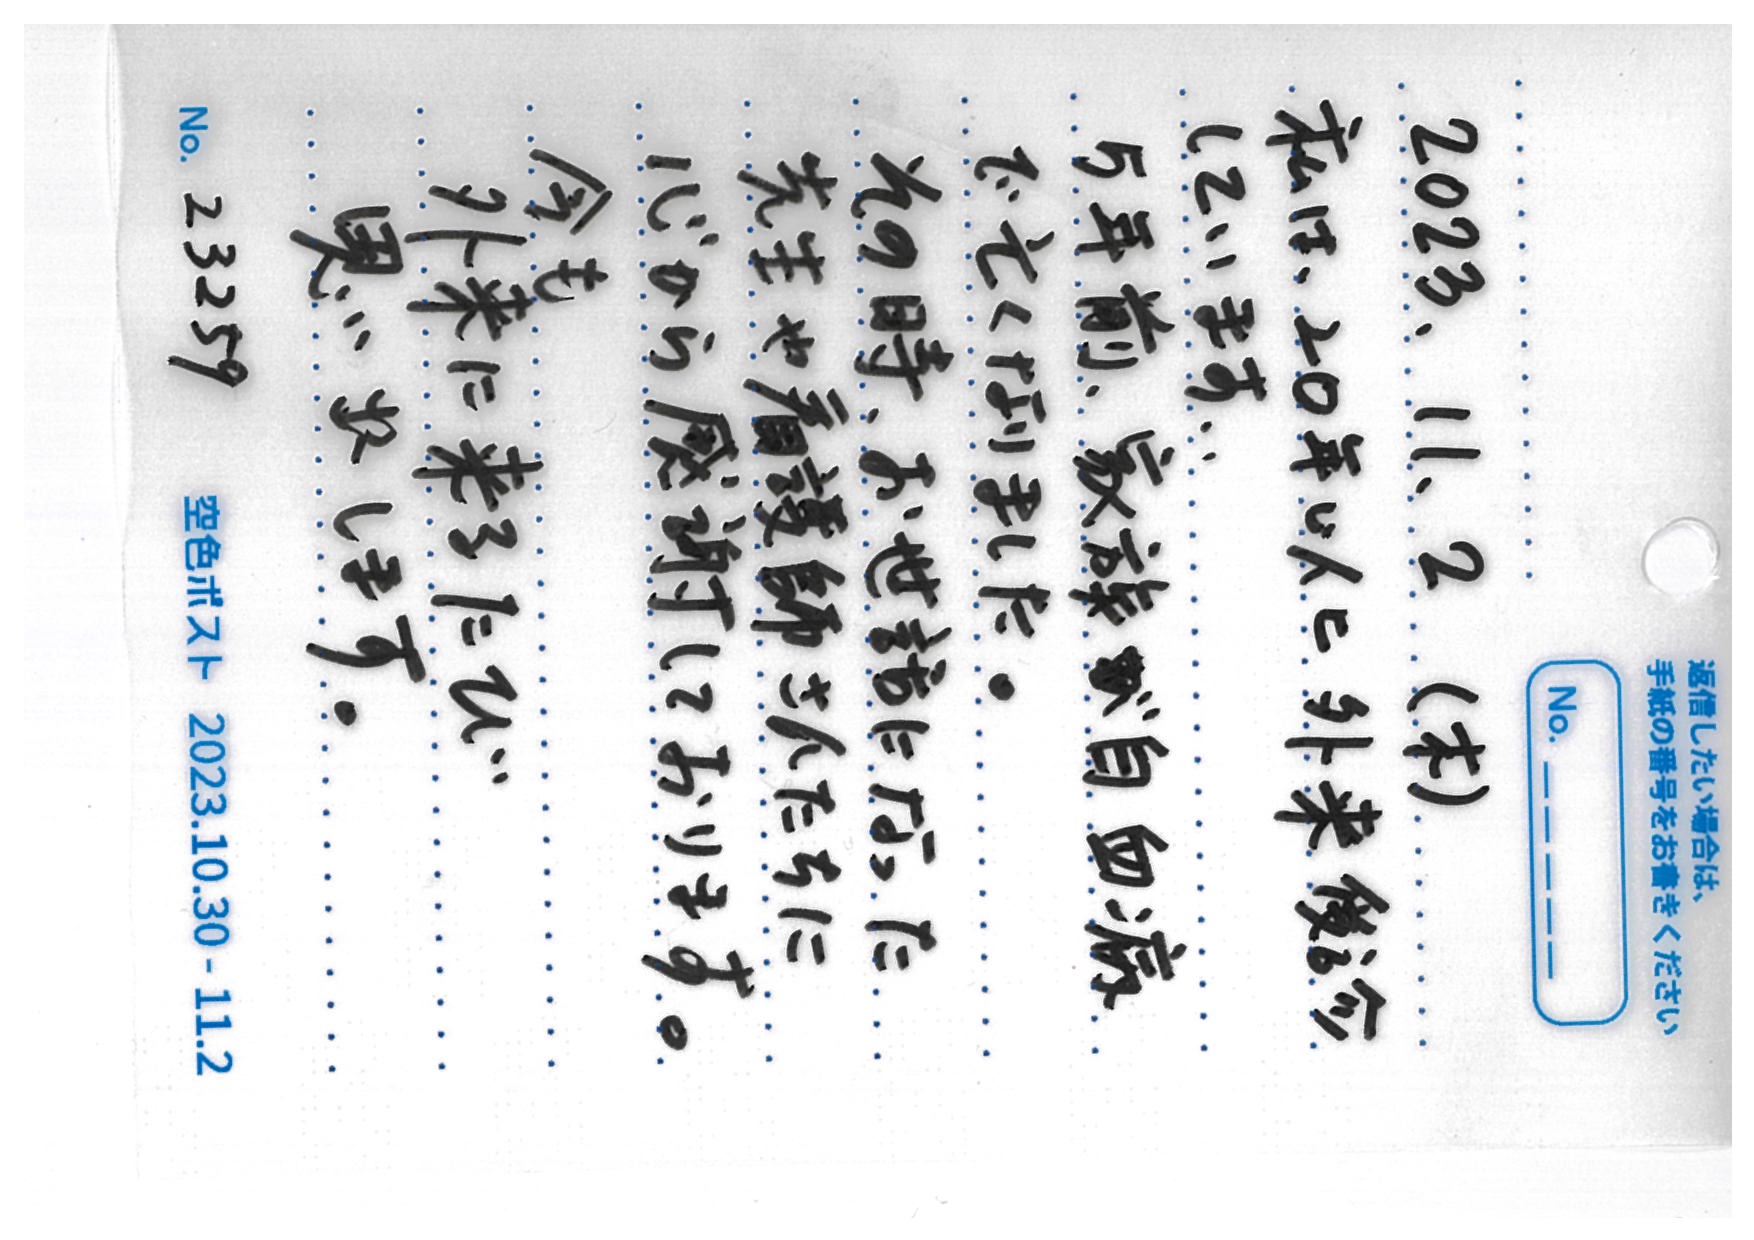 返信したい場合は、
手紙の番号をお書きください
No. _ _ _ _ _
2023、11、2 (木)
私は、20年以上 外来 診
しています..
5年前、家族が白血病
で亡くなりました。
その時、お世話になった
先生や看護師さんたちに
心から感謝しております。
今も
外来に来るたび
思い出します。
No. 23259 空色ポスト 2023.10.30 - 11.2